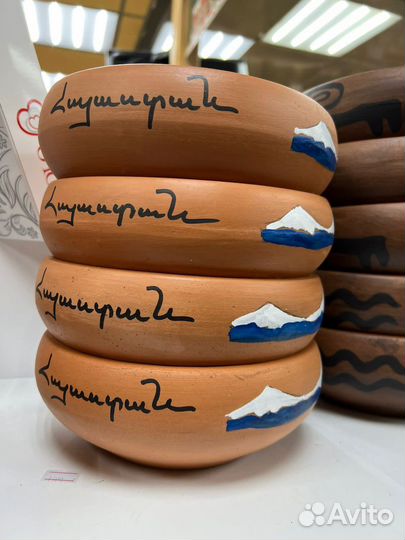 Հայաստան
Հայաստան
Հայաստան
Հայաստան
Avito